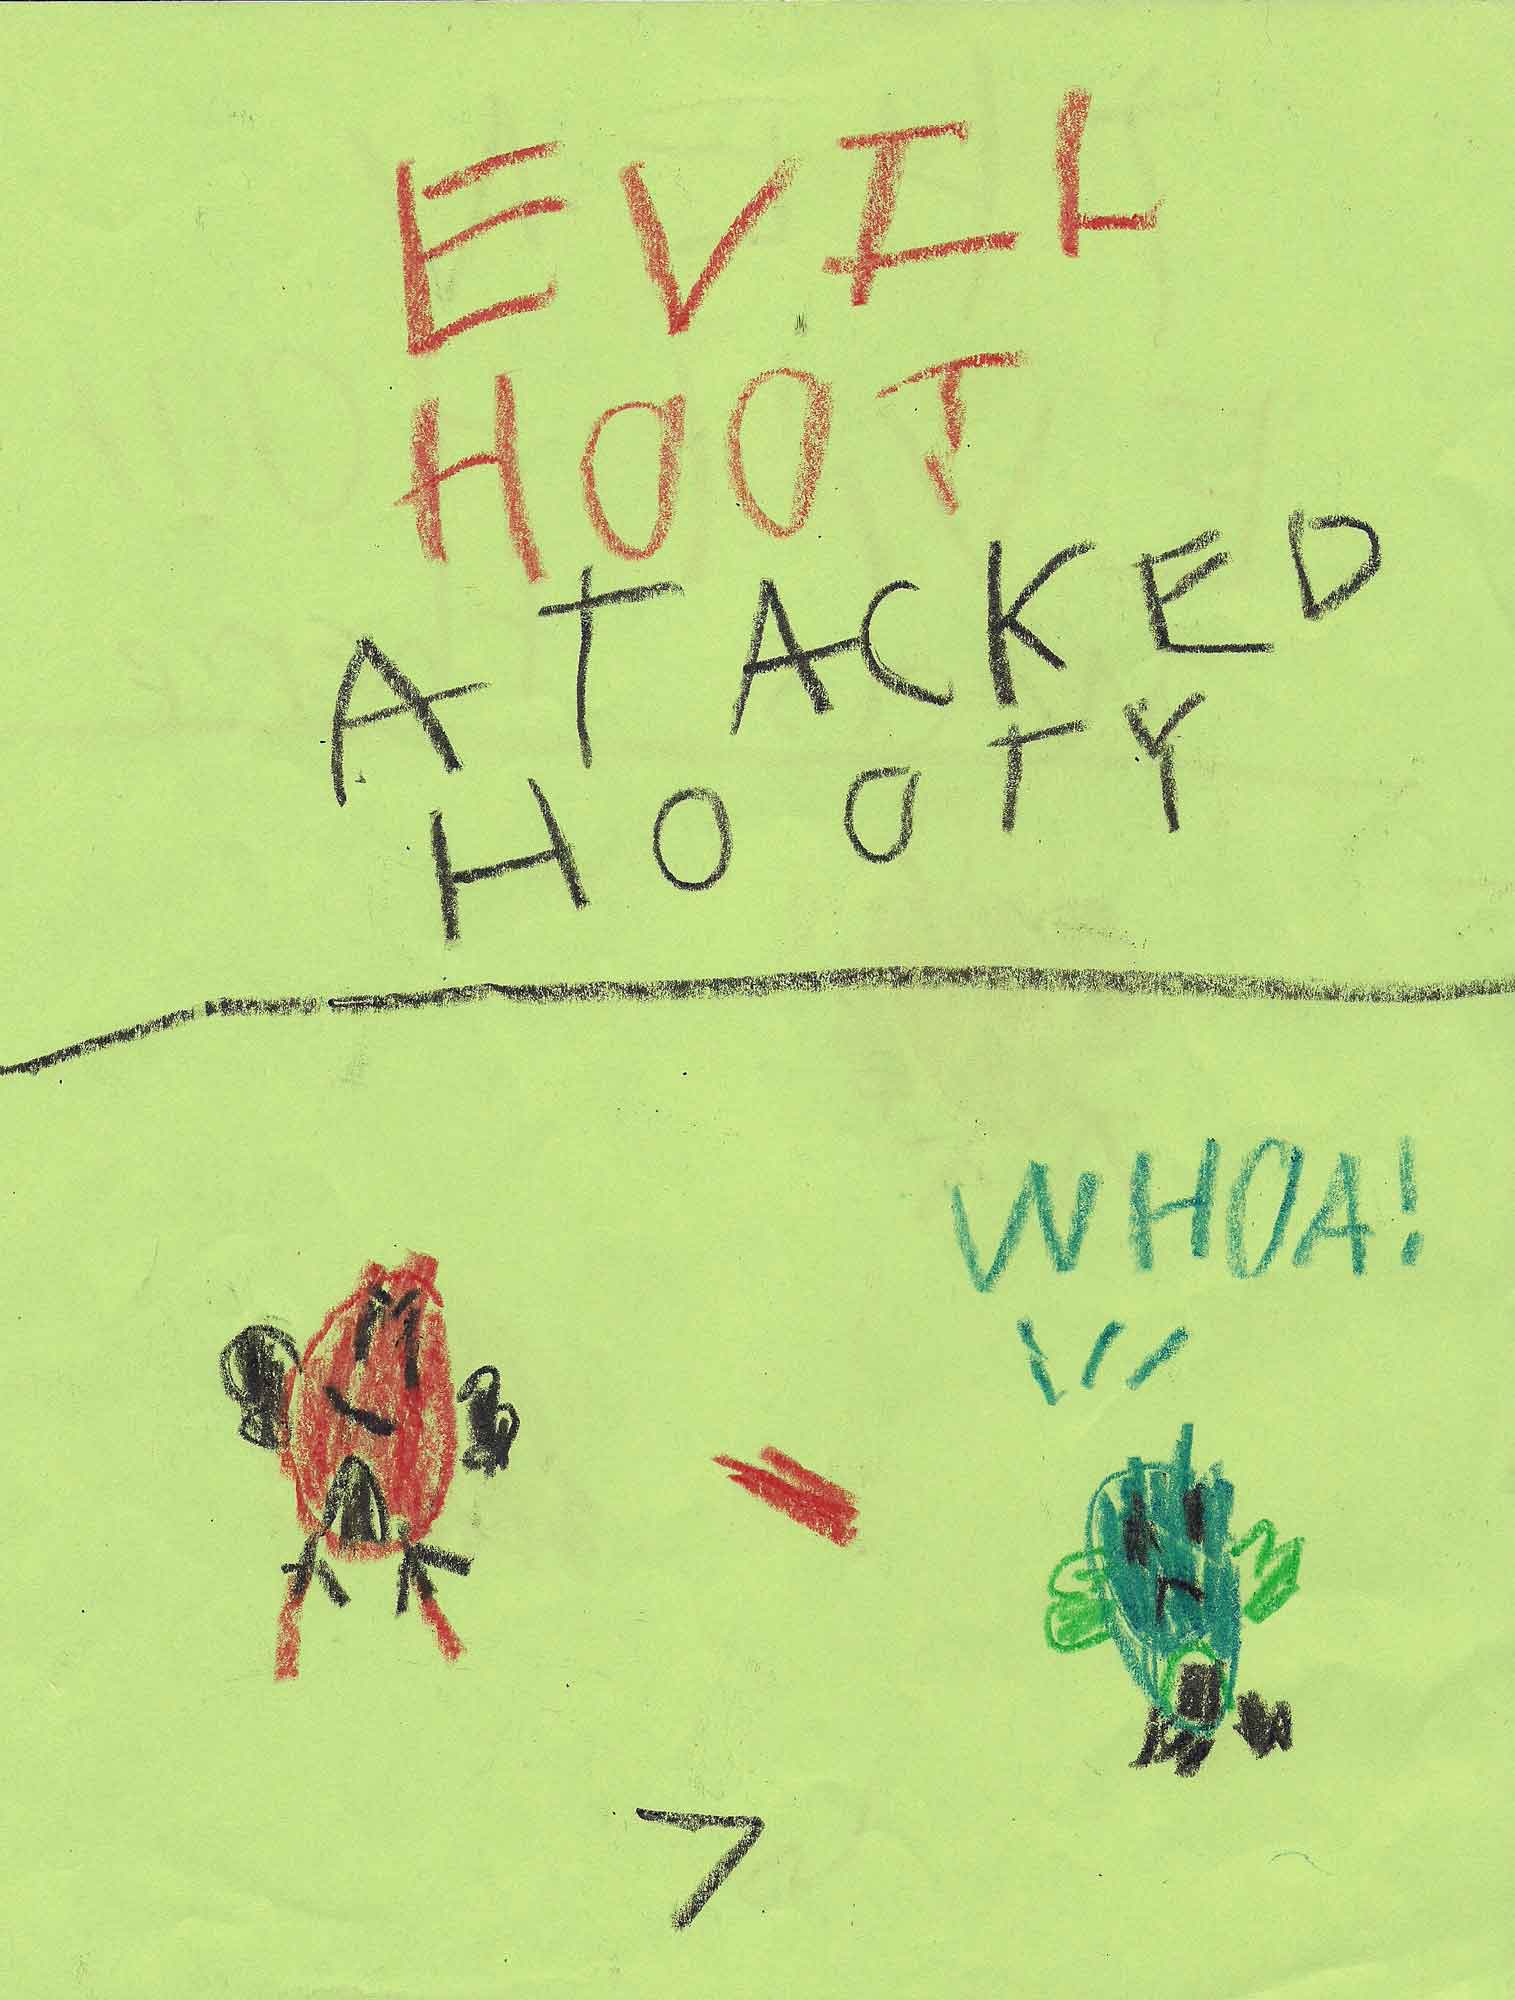 EVIL
HOOT
ATACKED
HOOTY
WHOA!
7